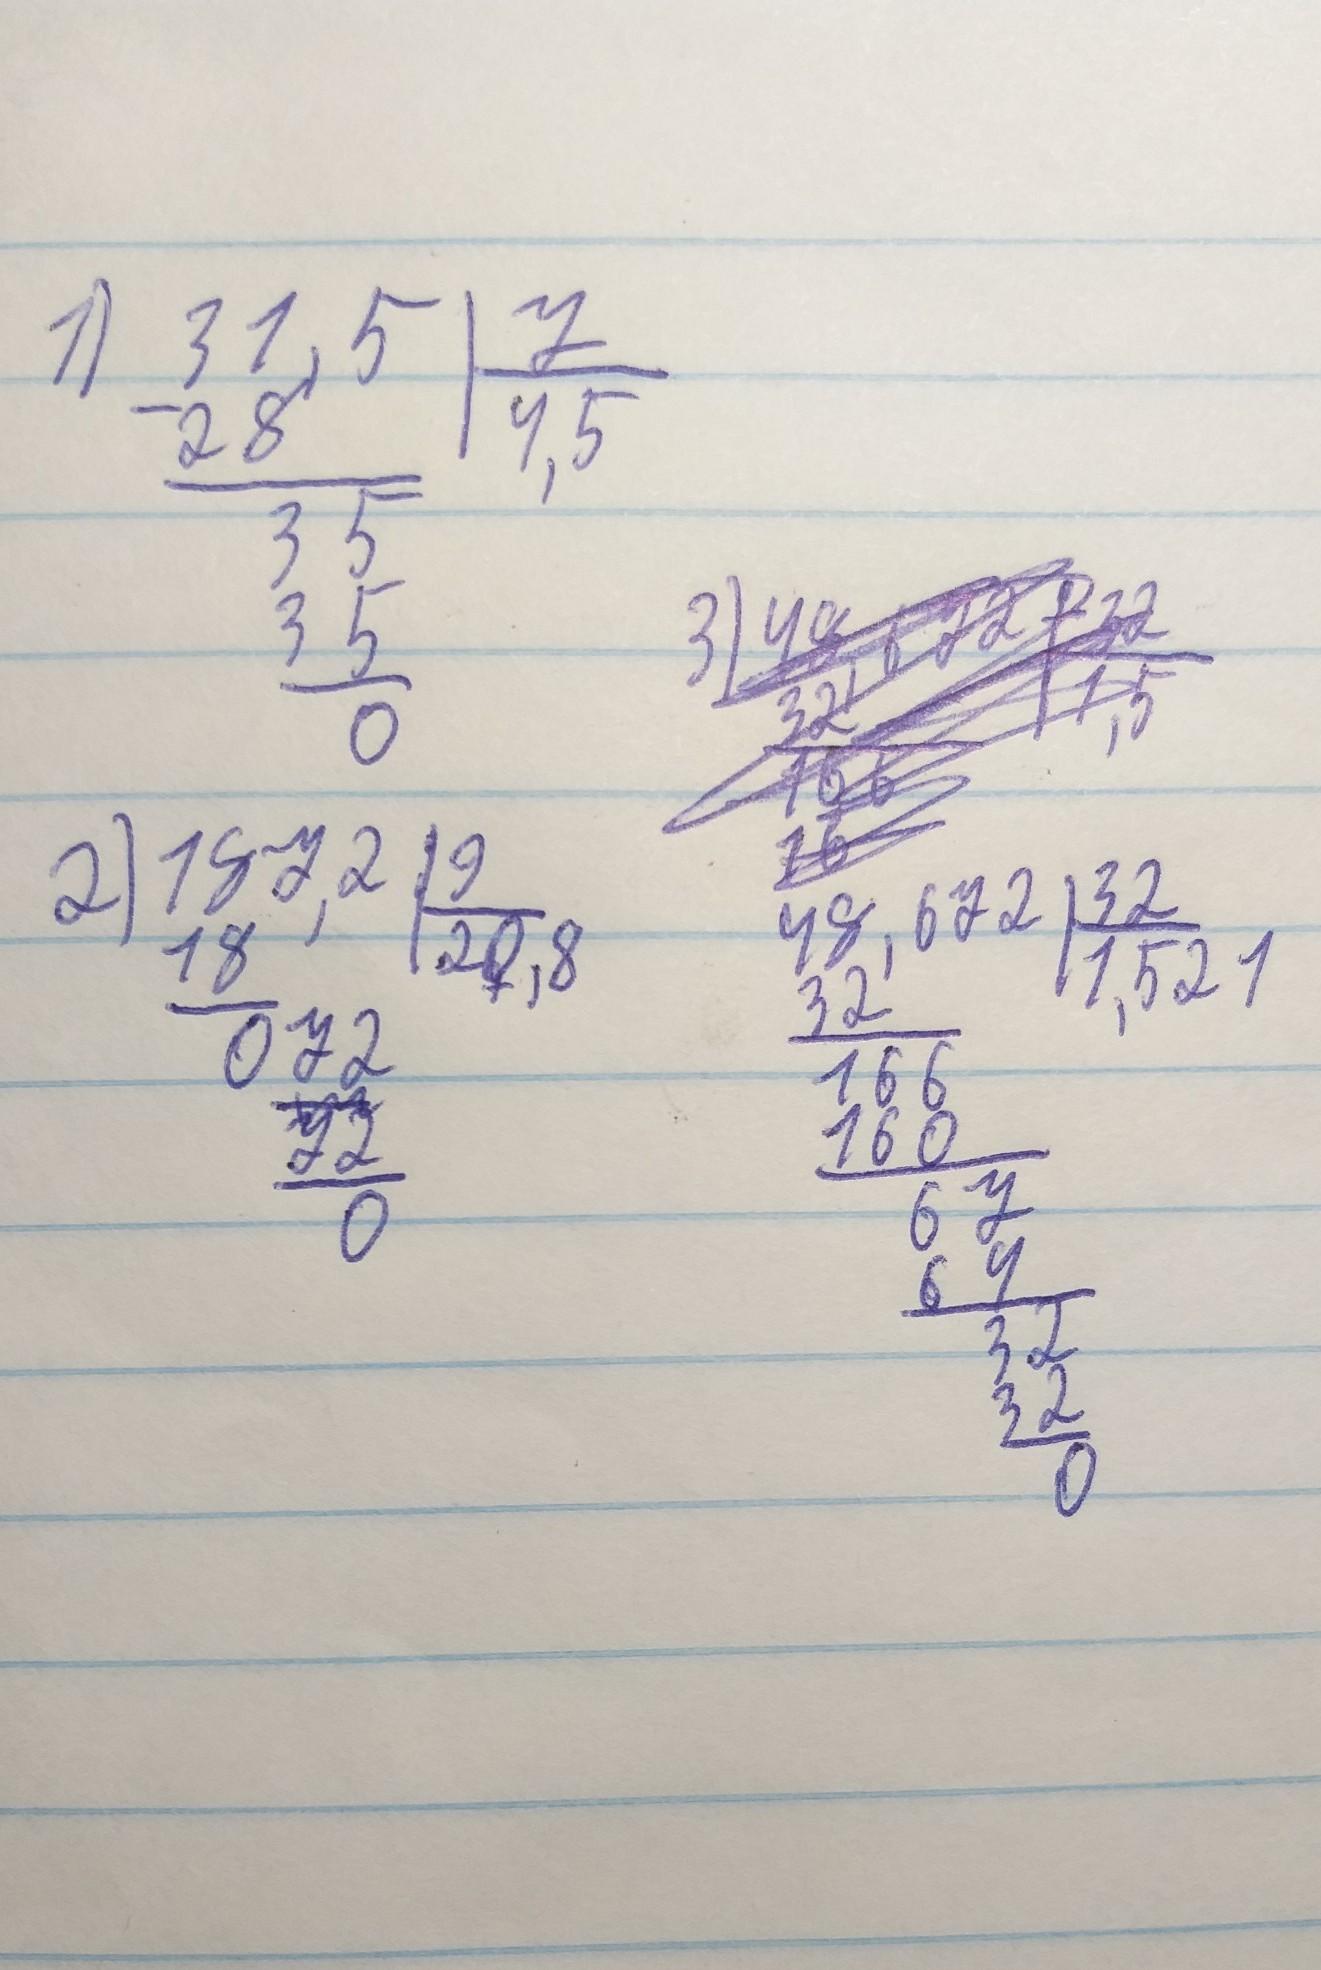 1) 31,5 | 7
- 28 | 4,5
35
35
0
2) 187,2 | 9
18 | 20,8
072
72
0
3) 48,672 | 32
32 | 1,5
166
16
48,672 | 32
32 | 1,521
166
160
67
64
32
32
0